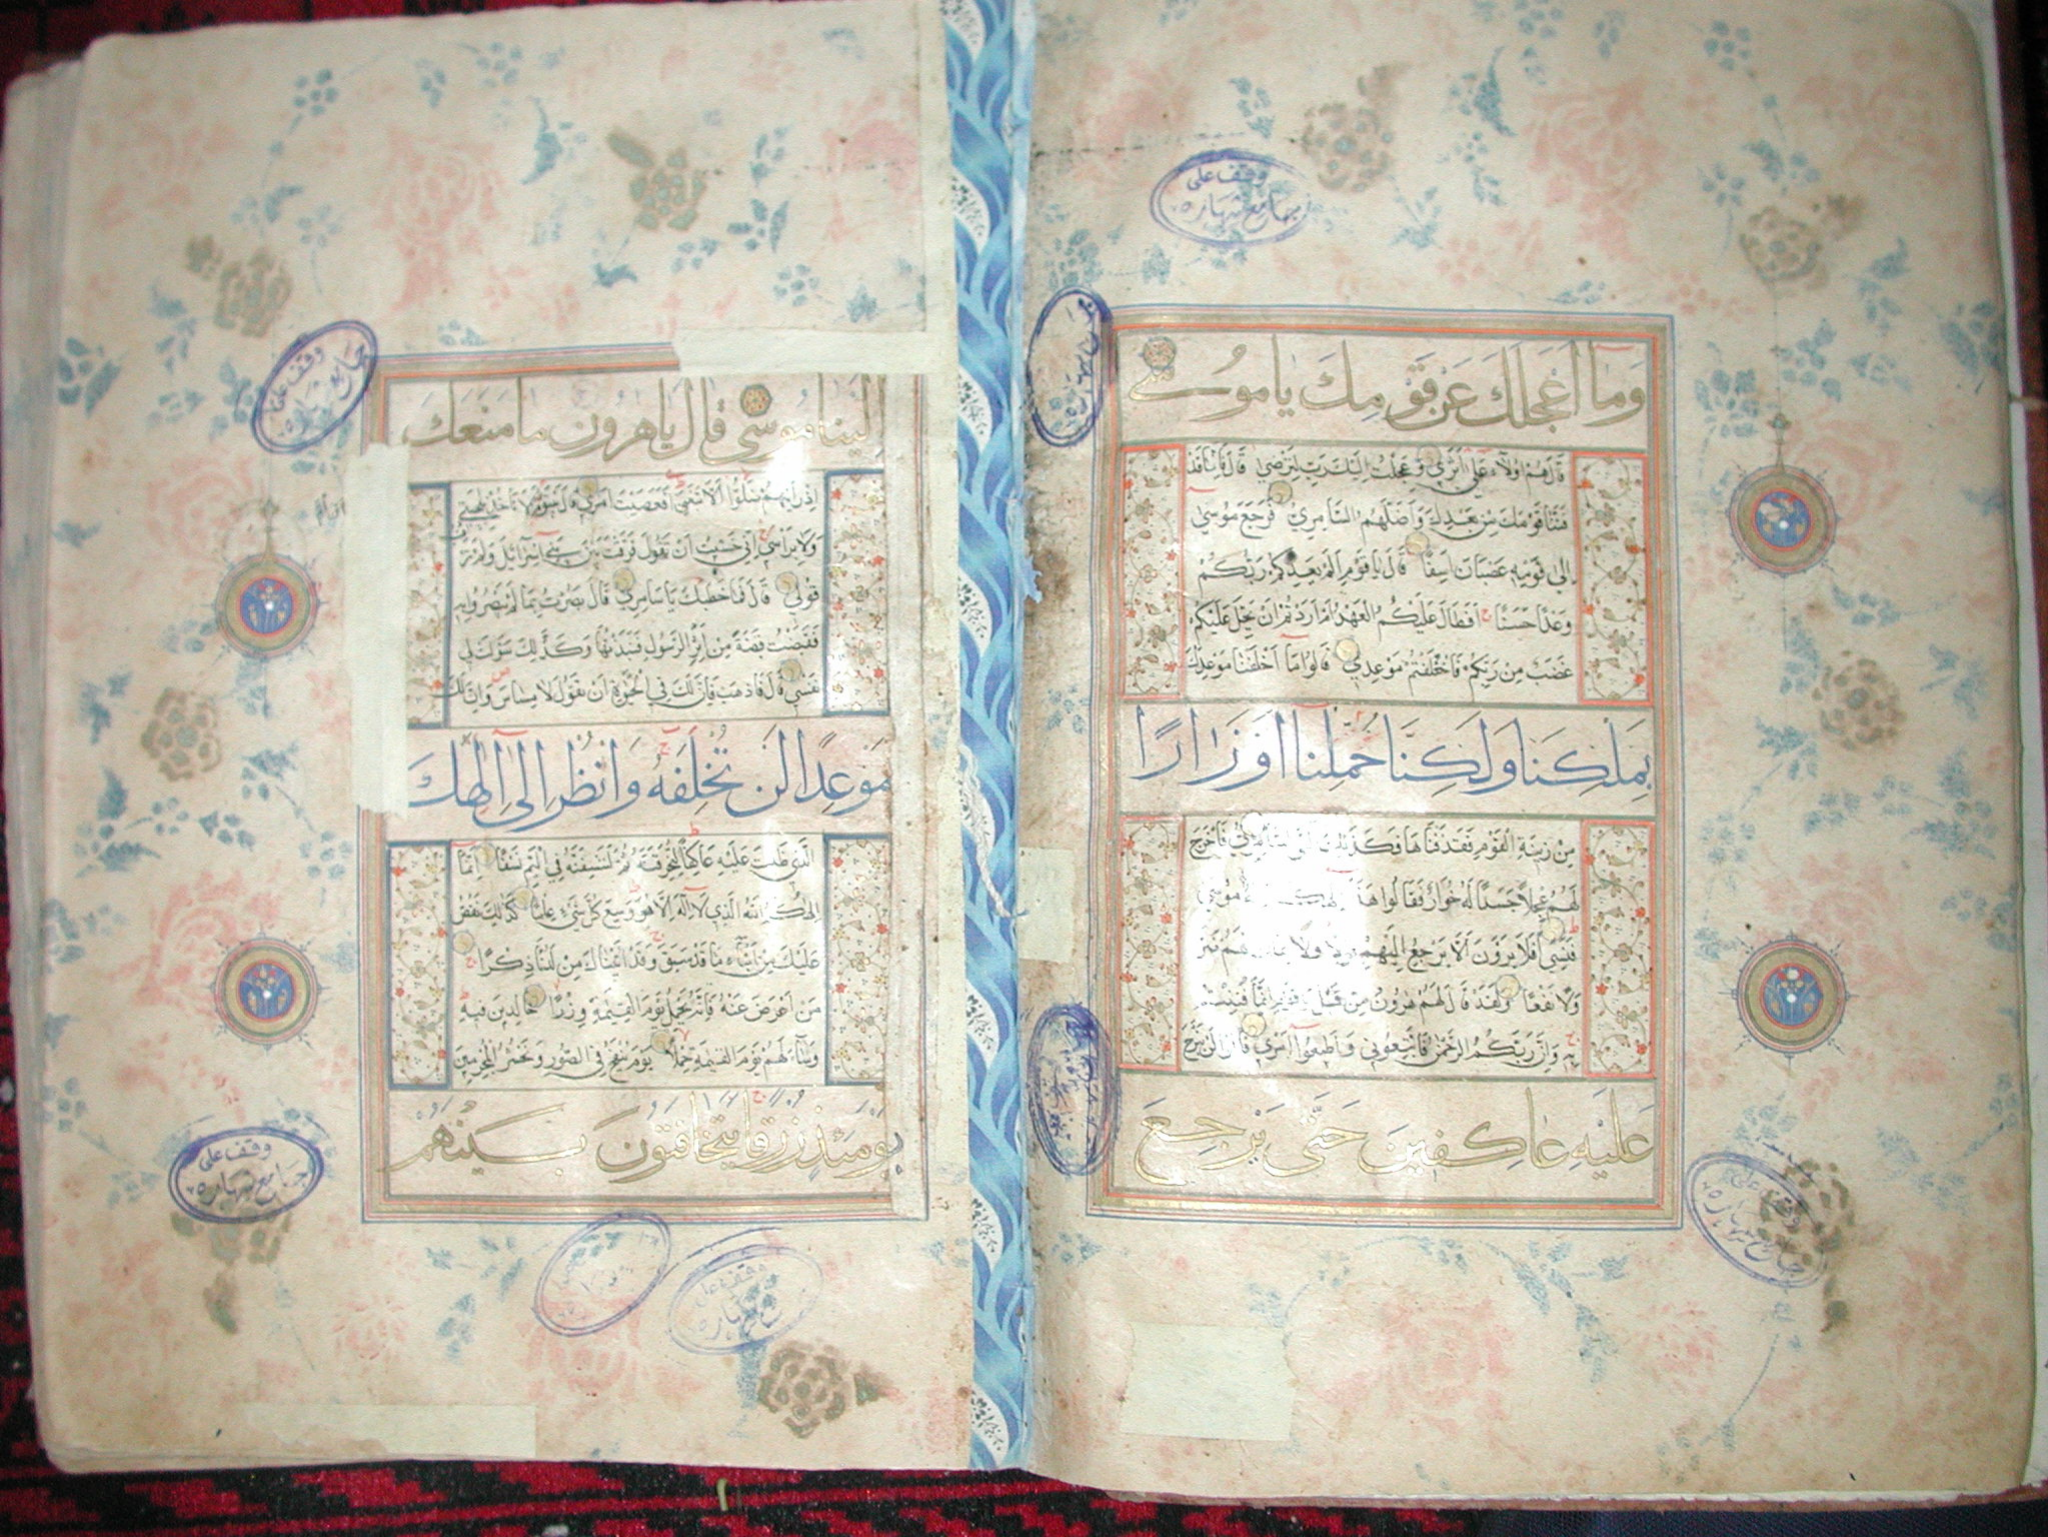 وَمَآ أَعْجَلَكَ عَنْ قَوْمِكَ يَامُوسَى
قَالَ هُمْ اُولَآءِ عَلَى اَثَرِي وَعَجِلْتُ اِلَيْكَ رَبِّ لِتَرْضَى قَالَ فَاِنَّا قَدْ
فَتَنَّا قَوْمَكَ مِنْ بَعْدِكَ وَاَضَلَّهُمُ السَّامِرِيُّ فَرَجَعَ مُوسَى
اِلَى قَوْمِهِ غَضْبَانَ اَسِفًا قَالَ يَا قَوْمِ اَلَمْ يَعِدْكُمْ رَبُّكُمْ
وَعْدًا حَسَنًا اَفَطَالَ عَلَيْكُمُ الْعَهْدُ اَمْ اَرَدْتُمْ اَنْ يَحِلَّ عَلَيْكُمْ
غَضَبٌ مِنْ رَبِّكُمْ فَاَخْلَفْتُمْ مَوْعِدِي قَالُوا مَآ اَخْلَفْنَا مَوْعِدَكَ
بِمَلْكِنَا وَلَكِنَّا حُمِّلْنَا اَوْزَارًا
مِنْ زِينَةِ الْقَوْمِ فَقَذَفْنَاهَا فَكَذَلِكَ اَلْقَى السَّامِرِيُّ فَاَخْرَجَ
لَهُمْ عِجْلًا جَسَدًا لَهُ خُوَارٌ فَقَالُوا هَذَا اِلَهُكُمْ مُوسَى
فَنَسِيَ اَفَلَا يَرَوْنَ اَلَّا يَرْجِعُ اِلَيْهِمْ قَوْلًا وَلَا يَمْلِكُ لَهُمْ ضَرًّا
وَلَا نَفْعًا وَلَقَدْ قَالَ لَهُمْ هَرُونُ مِنْ قَبْلُ يَا قَوْمِ اِنَّمَا فُتِنْتُمْ
بِهِ وَاِنَّ رَبَّكُمُ الرَّحْمَنُ فَاتَّبِعُونِي وَاَطِيعُوا اَمْرِي قَالُوا لَنْ نَبْرَحَ
عَلَيْهِ عَاكِفِينَ حَتَّى يَرْجِعَ
اِلَيْنَا مُوسَى قَالَ يَا هَرُونُ مَا مَنَعَكَ
اِذْ رَاَيْتَهُمْ ضَلُّوا اَلَّا تَتَّبِعَنِ اَفَعَصَيْتَ اَمْرِي قَالَ يَبْنَؤُمَّ لَا تَاْخُذْ بِلِحْيَتِي
وَلَا بِرَاْسِي اِنِّي خَشِيتُ اَنْ تَقُولَ فَرَّقْتَ بَيْنَ بَنِي اِسْرَآئِيلَ وَلَمْ تَرْقُبْ
قَوْلِي قَالَ فَمَا خَطْبُكَ يَا سَامِرِيُّ قَالَ بَصُرْتُ بِمَا لَمْ يَبْصُرُوا بِهِ
فَقَبَضْتُ قَبْضَةً مِنْ اَثَرِ الرَّسُولِ فَنَبَذْتُهَا وَكَذَلِكَ سَوَّلَتْ لِي
نَفْسِي قَالَ فَاذْهَبْ فَاِنَّ لَكَ فِي الْحَيوةِ اَنْ تَقُولَ لَا مِسَاسَ وَاِنَّ لَكَ
مَوْعِدًا لَنْ تُخْلَفَهُ وَانْظُرْ اِلَى اِلَهِكَ
الَّذِي ظَلْتَ عَلَيْهِ عَاكِفًا لَنُحَرِّقَنَّهُ ثُمَّ لَنَنْسِفَنَّهُ فِي الْيَمِّ نَسْفًا اِنَّمَا
اِلَهُكُمُ اللَّهُ الَّذِي لَآ اِلَهَ اِلَّا هُوَ وَسِعَ كُلَّ شَيْءٍ عِلْمًا كَذَلِكَ نَقُصُّ
عَلَيْكَ مِنْ اَنْبَآءِ مَا قَدْ سَبَقَ وَقَدْ اَتَيْنَاكَ مِنْ لَدُنَّا ذِكْرًا
مَنْ اَعْرَضَ عَنْهُ فَاِنَّهُ يَحْمِلُ يَوْمَ الْقِيمَةِ وِزْرًا خَالِدِينَ فِيهِ
وَسَآءَ لَهُمْ يَوْمَ الْقِيمَةِ حِمْلًا يَوْمَ يُنْفَخُ فِي الصُّورِ وَنَحْشُرُ الْمُجْرِمِينَ
يَوْمَئِذٍ زُرْقًا يَتَخَافَتُونَ بَيْنَهُمْ
وقف على
وقف على
وقف على
وقف على
وقف على